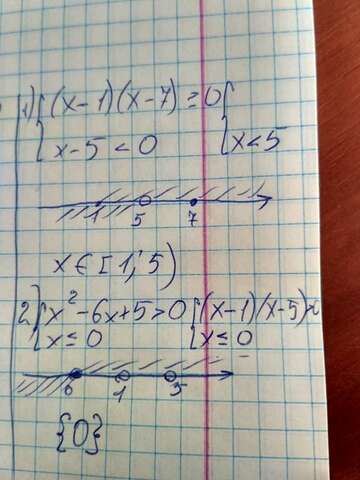 1) { (x-1)(x-7) = 0 {
{ x-5 < 0 { x < 5
1 5 7
x ∈ [1; 5)
2) { x² - 6x + 5 > 0 { (x-1)(x-5)
{ x ≤ 0 { x ≤ 0
0 1 5
{0}